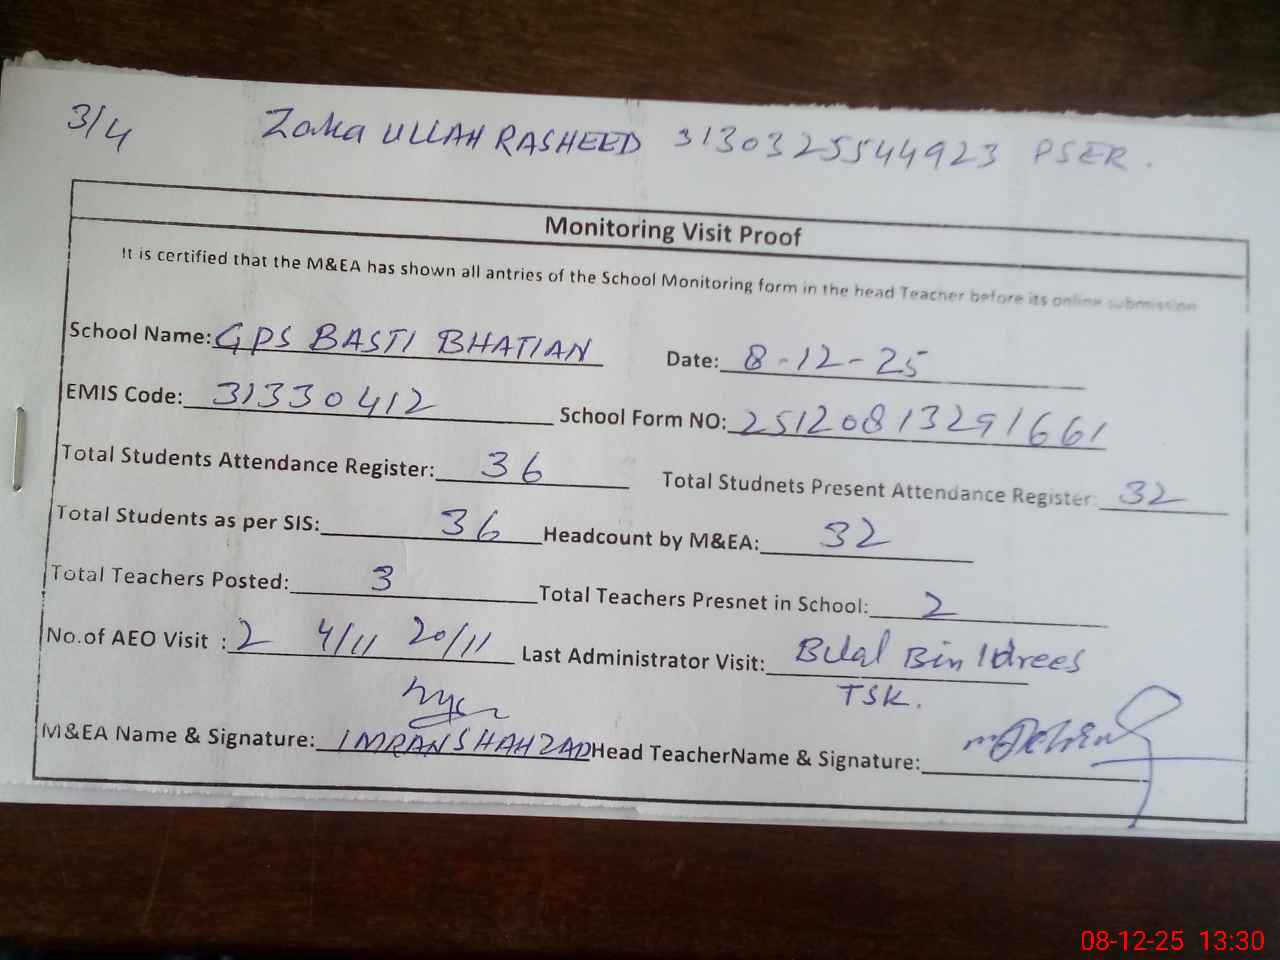 3/4 Zaka ULLAH RASHEED 3130325544923 PSER.
Monitoring Visit Proof
It is certified that the M&EA has shown all antries of the School Monitoring form in the head Teacher before its online submission
School Name: GPS BASTI BHATIAN Date: 8-12-25
EMIS Code: 31330412 School Form NO: 25120813291661
Total Students Attendance Register: 36 Total Studnets Present Attendance Register: 32
Total Students as per SIS: 36 Headcount by M&EA: 32
Total Teachers Posted: 3 Total Teachers Presnet in School: 2
No.of AEO Visit : 2 4/11 20/11 Last Administrator Visit: Bilal Bin Idrees
TSK.
M&EA Name & Signature: IMRAN SHAHZAD Head TeacherName & Signature:
08-12-25 13:30